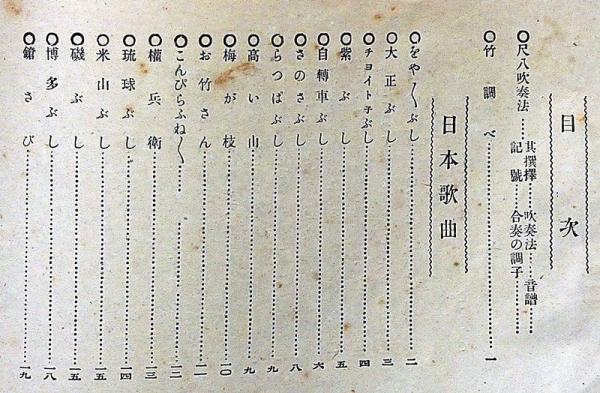 目次
〇尺八吹奏法 其撰擇……吹奏法……音譜……
記號……合奏の調子……
〇竹調べ……一
日本歌曲
〇をや〱ぶし……二
〇大正ぶし……三
〇チヨイト子ぶし……四
〇紫ぶし……五
〇自轉車ぶし……六
〇さのさぶし……八
〇らつぱぶし……九
〇高い山……九
〇梅が枝……一〇
〇お竹さん……一一
〇こんぴらふね〱……一二
〇權兵衞……一三
〇琉球ぶし……一四
〇米山ぶし……一五
〇磯ぶし……一五
〇博多ぶし……一八
〇鎗さび……一九